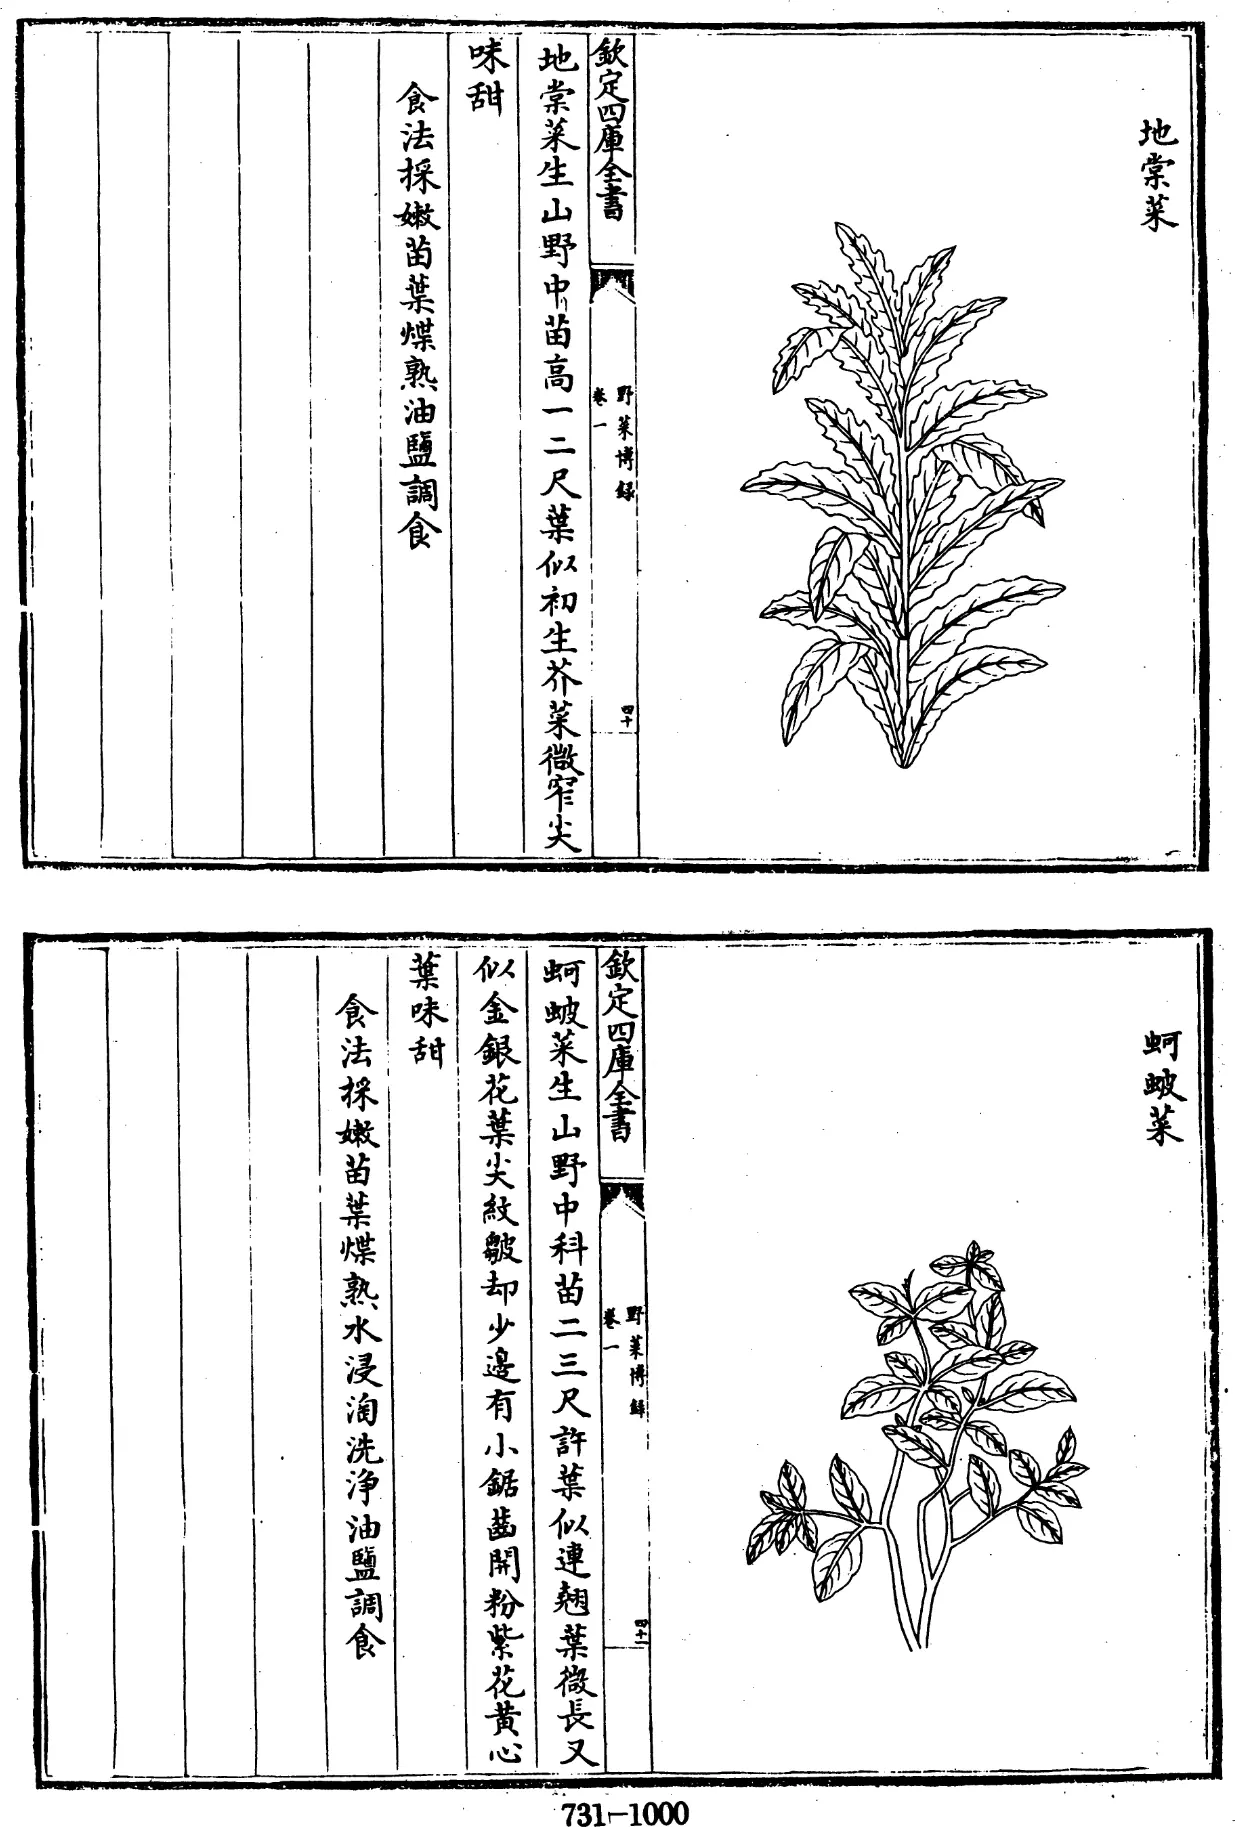 地棠菜
欽定四庫全書
野菜博録
卷一
四十
地棠菜生山野中苗高一二尺葉似初生芥菜微窄尖
味甜
食法採嫩苗葉煠熟油鹽調食
蚵蚾菜
欽定四庫全書
野菜博録
卷一
四十一
蚵蚾菜生山野中科苗二三尺許葉似連翹葉微長又
似金銀花葉尖紋皺却少邊有小鋸齒開粉紫花黃心
葉味甜
食法採嫩苗葉煠熟水浸淘洗淨油鹽調食
731-1000